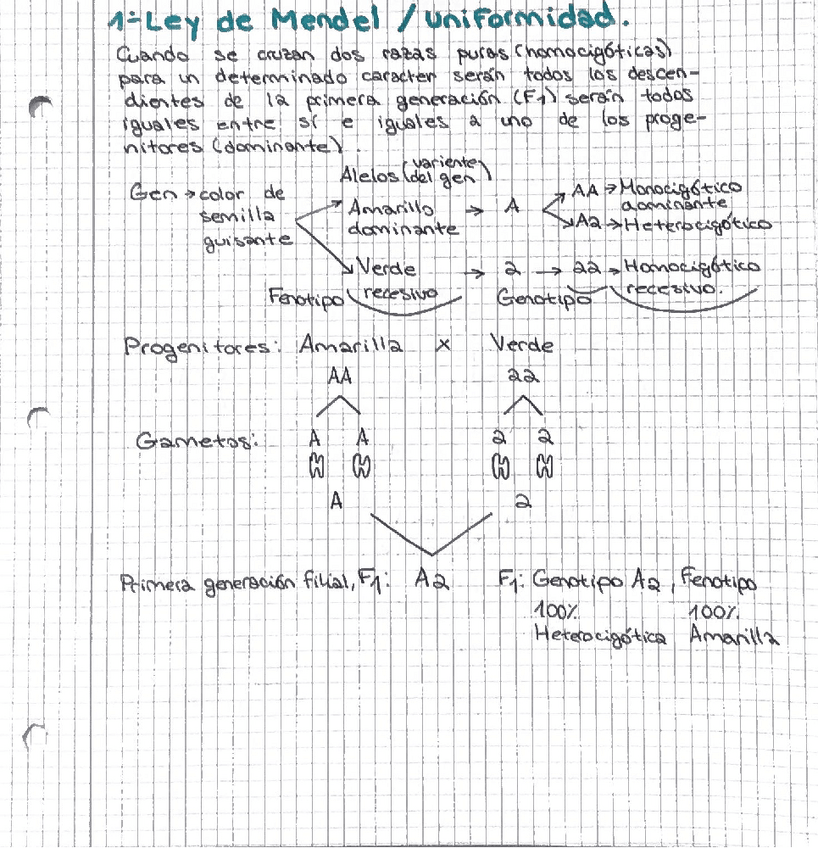 1ª Ley de Mendel / Uniformidad.
Cuando se cruzan dos razas puras (homocigóticas)
para un determinado caracter serán todos los descen-
dientes de la primera generación (F1) serán todos
iguales entre sí e iguales a uno de los proge-
nitores (dominante).
Alelos (variente del gen)
Gen → color de semilla guisante
Amarillo dominante → A
AA → Monocigótico dominante
Aa → Heterocigótico
Verde recesivo → a → aa → Homocigótico recesivo.
Fenotipo Genotipo
Progenitores: Amarilla x Verde
AA aa
Gametos: A A a a
A a
Primera generación filial, F1: Aa F1: Genotipo Aa, Fenotipo
100% 100%
Heterocigótica Amarilla